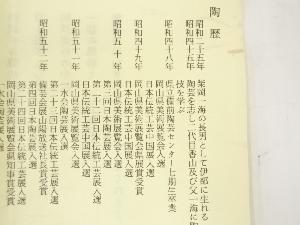 陶歴
昭和二十五年
柴岡一海の長男として伊部に生れる
昭和四十五年
陶芸を志し二代目香山及び父一海に陶
技を学ぶ
昭和四十八年
県立備前陶芸センター七期三卒業
日本伝統工芸中国展入選
岡山県美術展覧会県展賞受賞
昭和四十九年
日本伝統工芸中国展入選
岡山県美術展覧会入選
昭和五十年
岡山県美術展覧会入選
日本伝統工芸中国展入選
第二十二回日本伝統工芸展入選
一水会陶芸展入選
昭和五十一年
岡山県美術展覧会入選
第二十三回日本伝統工芸展入選
備芸会展山陽放送社長賞受賞
昭和五十二年
第四回日本陶芸展入選
第二十四回日本伝統工芸展入選
岡山県美術展覧会県知事賞受賞
一水会陶芸展入選